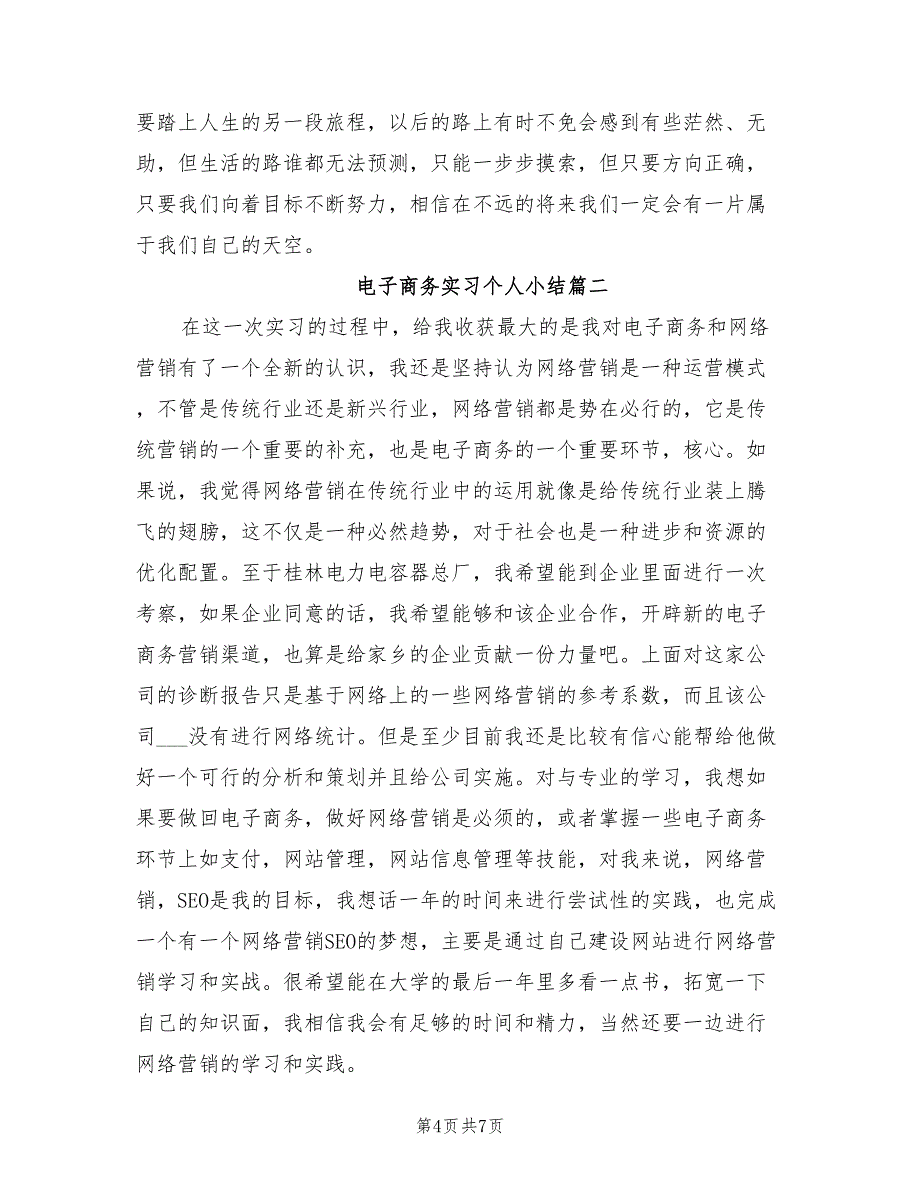 要踏上人生的另一段旅程，以后的路上有时不免会感到有些茫然、无
助，但生活的路谁都无法预测，只能一步步摸索，但只要方向正确，
只要我们向着目标不断努力，相信在不远的将来我们一定会有一片属
于我们自己的天空。
电子商务实习个人小结篇二
在这一次实习的过程中，给我收获最大的是我对电子商务和网络
营销有了一个全新的认识，我还是坚持认为网络营销是一种运营模式
，不管是传统行业还是新兴行业，网络营销都是势在必行的，它是传
统营销的一个重要的补充，也是电子商务的一个重要环节，核心。如
果说，我觉得网络营销在传统行业中的运用就像是给传统行业装上腾
飞的翅膀，这不仅是一种必然趋势，对于社会也是一种进步和资源的
优化配置。至于桂林电力电容器总厂，我希望能到企业里面进行一次
考察，如果企业同意的话，我希望能够和该企业合作，开辟新的电子
商务营销渠道，也算是给家乡的企业贡献一份力量吧。上面对这家公
司的诊断报告只是基于网络上的一些网络营销的参考系数，而且该公
司___没有进行网络统计。但是至少目前我还是比较有信心能帮给他做
好一个可行的分析和策划并且给公司实施。对与专业的学习，我想如
果要做回电子商务，做好网络营销是必须的，或者掌握一些电子商务
环节上如支付，网站管理，网站信息管理等技能，对我来说，网络营
销，SEO是我的目标，我想话一年的时间来进行尝试性的实践，也完成
一个有一个网络营销SEO的梦想，主要是通过自己建设网站进行网络营
销学习和实战。很希望能在大学的最后一年里多看一点书，拓宽一下
自己的知识面，我相信我会有足够的时间和精力，当然还要一边进行
网络营销的学习和实践。
第4页共7页